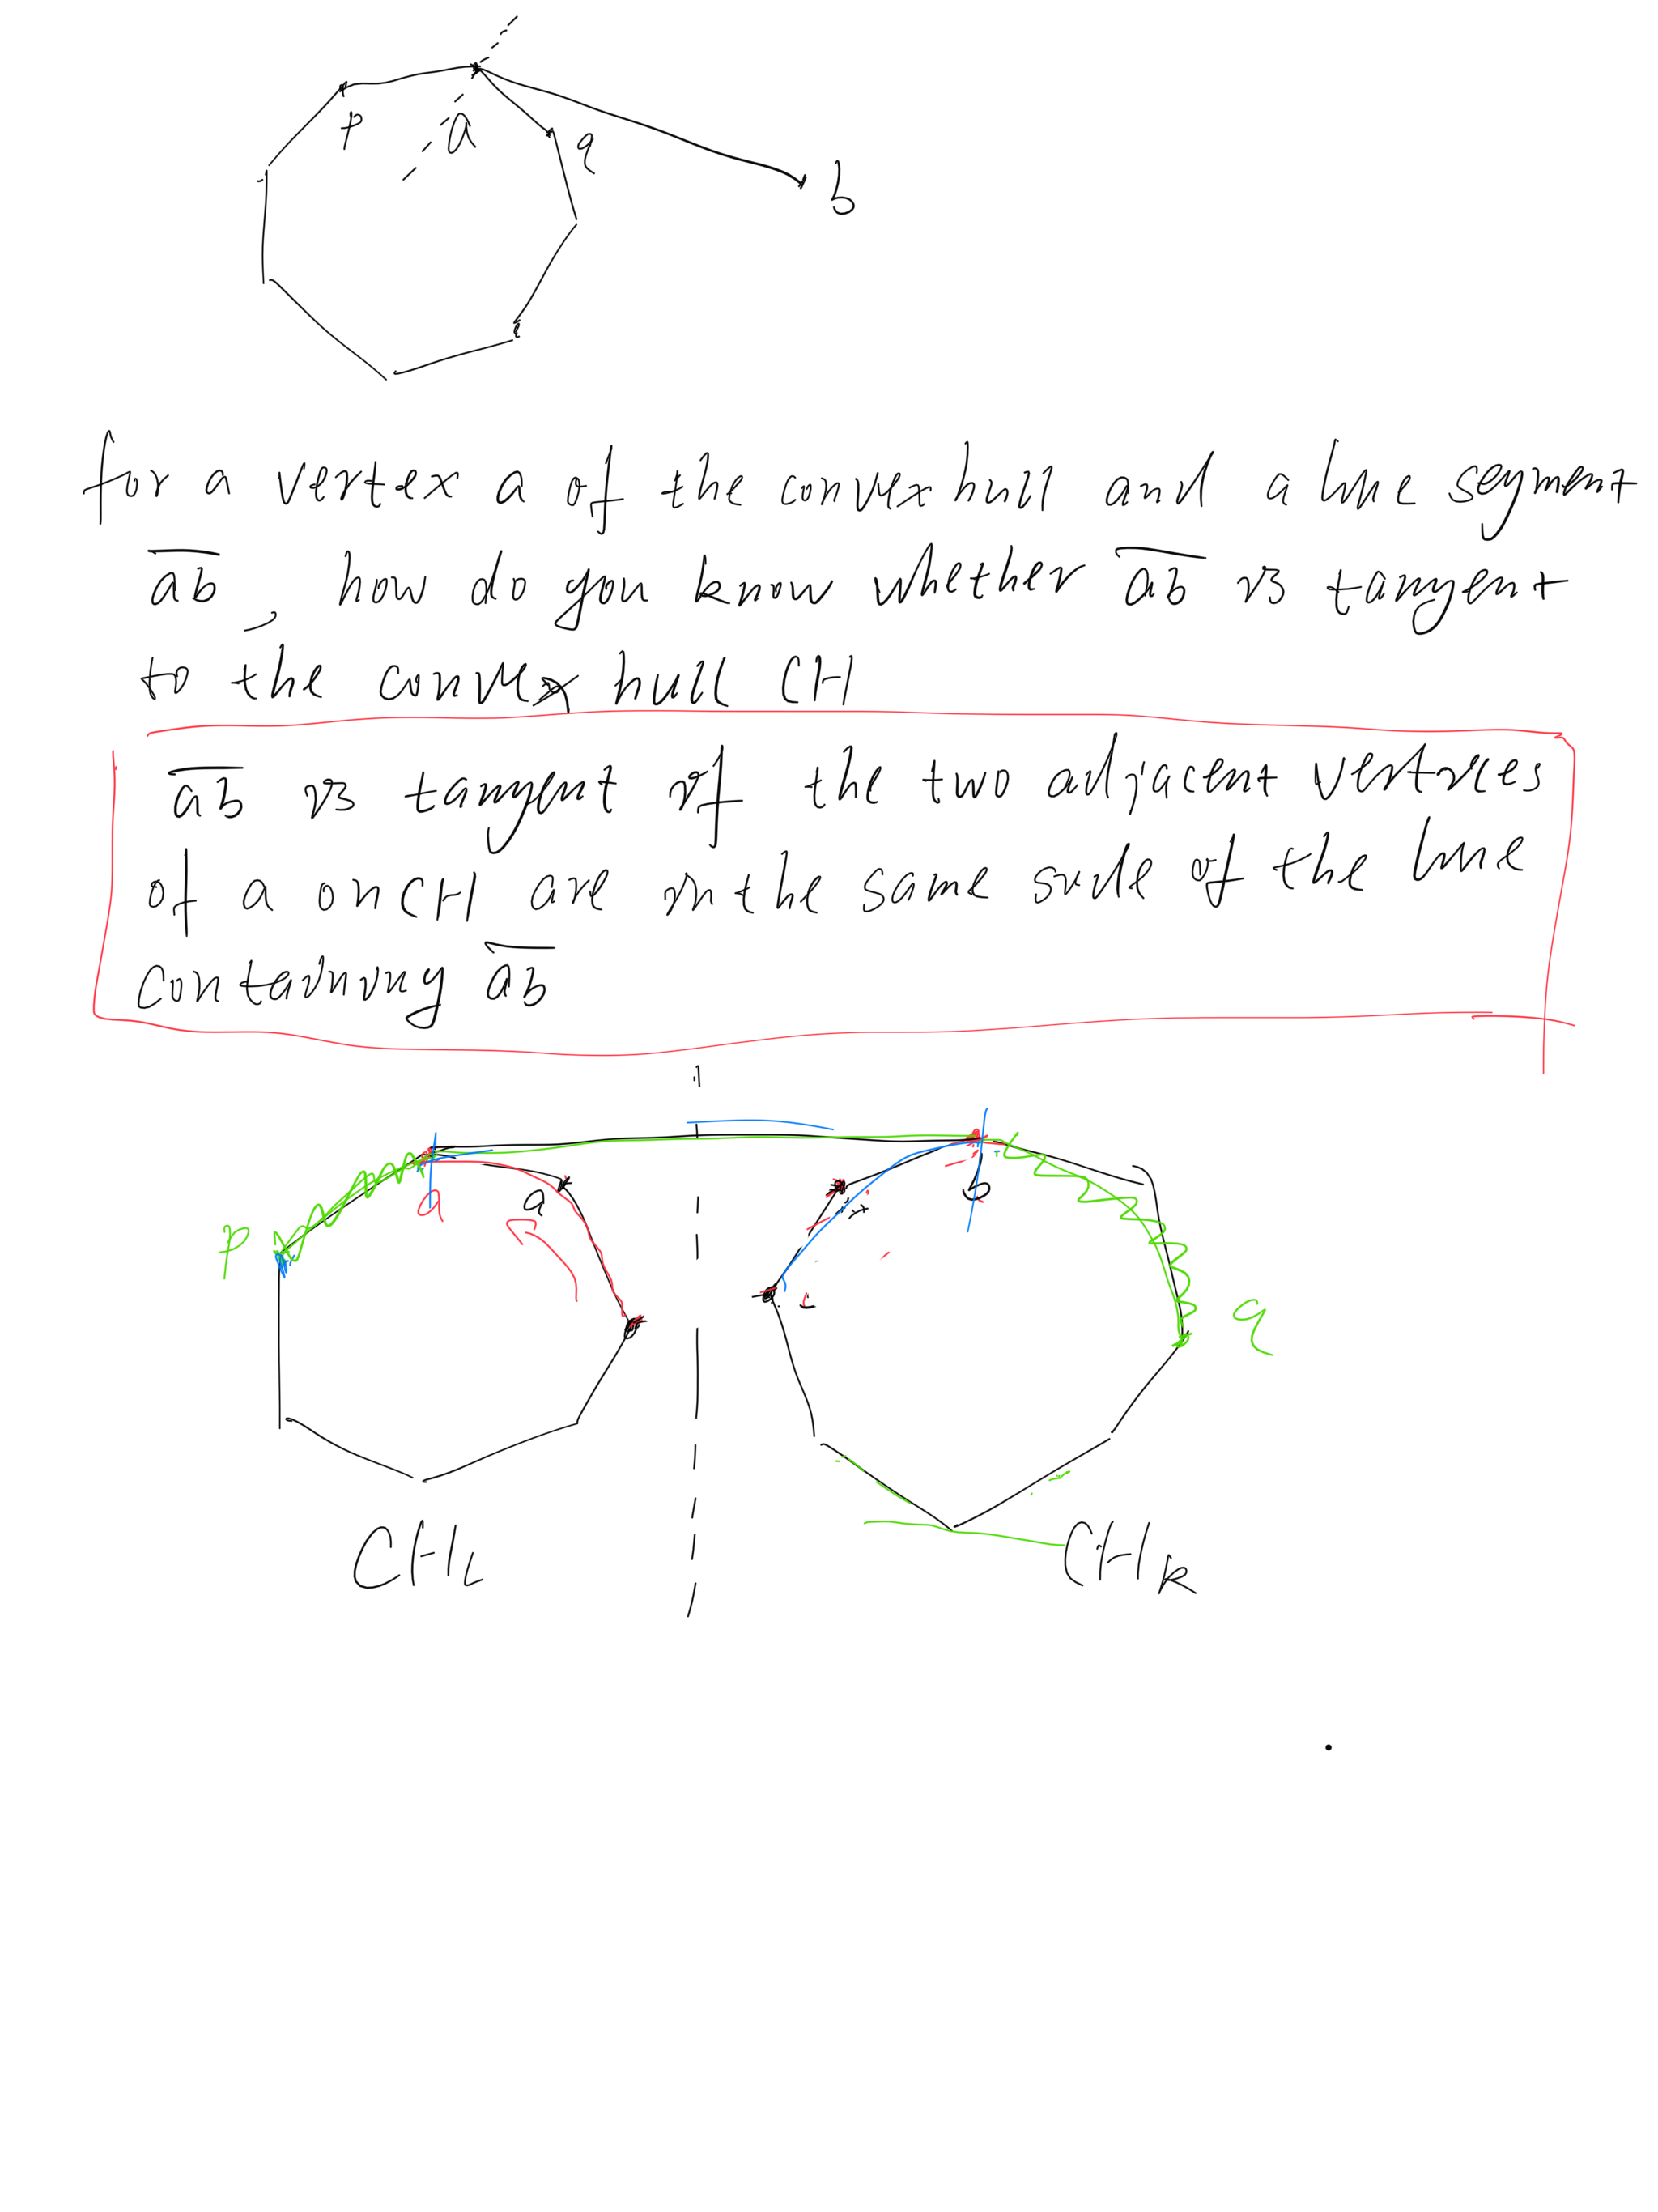 p
a
q
b
for a vertex a of the convex hull and a line segment
ab, how do you know whether ab is tangent
to the convex hull CH
ab is tangent if the two adjacent vertices
of a on CH are in the same side of the line
containing ab
p
a
a
b
q
CHL
CHR